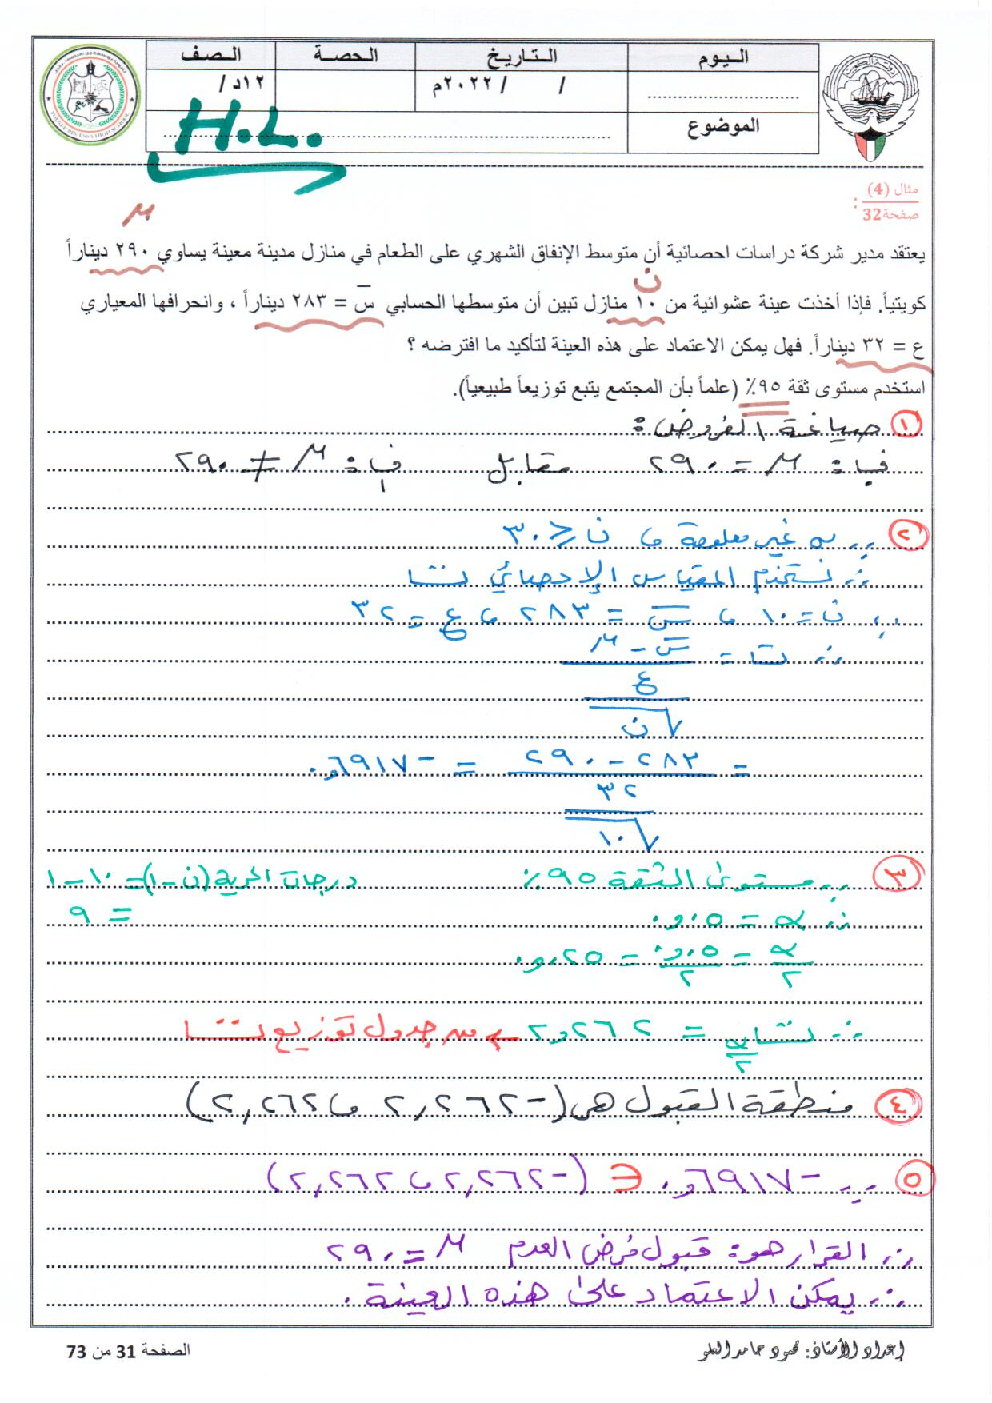 اليوم التاريخ الحصة الصف
/ / ٢٠٢٢م ١٢د /
الموضوع
H.L.
مثال (4)
صفحة32 :
μ
يعتقد مدير شركة دراسات احصائية أن متوسط الإنفاق الشهري على الطعام في منازل مدينة معينة يساوي ٢٩٠ ديناراً
ن
كويتياً. فإذا أخذت عينة عشوائية من ١٠ منازل تبين أن متوسطها الحسابي س̄ = ٢٨٣ ديناراً ، وانحرافها المعياري
ع = ٣٢ ديناراً. فهل يمكن الاعتماد على هذه العينة لتأكيد ما افترضه ؟
استخدم مستوى ثقة ٩٥٪ (علماً بأن المجتمع يتبع توزيعاً طبيعياً).
١ صياغة الفروض :
ف٠ : μ = ٢٩٠ مقابل ف١ : μ ≠ ٢٩٠
٢ ∵ σ غير معلومة ، ن ≤ ٣٠
∴ نستخدم المقياس الإحصائي ت
∵ ن = ١٠ ، س̄ = ٢٨٣ ، ع = ٣٢
∴ ت = (س̄ - μ) / (ع / √ن)
= (٢٨٣ - ٢٩٠) / (٣٢ / √١٠) = -٠,٦٩١٧
٣ ∵ مستوى الثقة ٩٥٪ درجات الحرية (ن-١) = ١٠-١
∴ α = ٠,٠٥ = ٩
α/٢ = ٠,٠٥/٢ = ٠,٠٢٥
∴ ت α/٢ = ٢,٢٦٢ ← من جدول توزيع ت
٤ منطقة القبول هى (-٢,٢٦٢ ، ٢,٢٦٢)
٥ ∵ -٠,٦٩١٧ ∈ (-٢,٢٦٢ ، ٢,٢٦٢)
∴ القرار هو: قبول فرض العدم μ = ٢٩٠
∴ يمكن الاعتماد على هذه العينة .
إعداد الأستاذ: محمود حامد
الصفحة 31 من 73